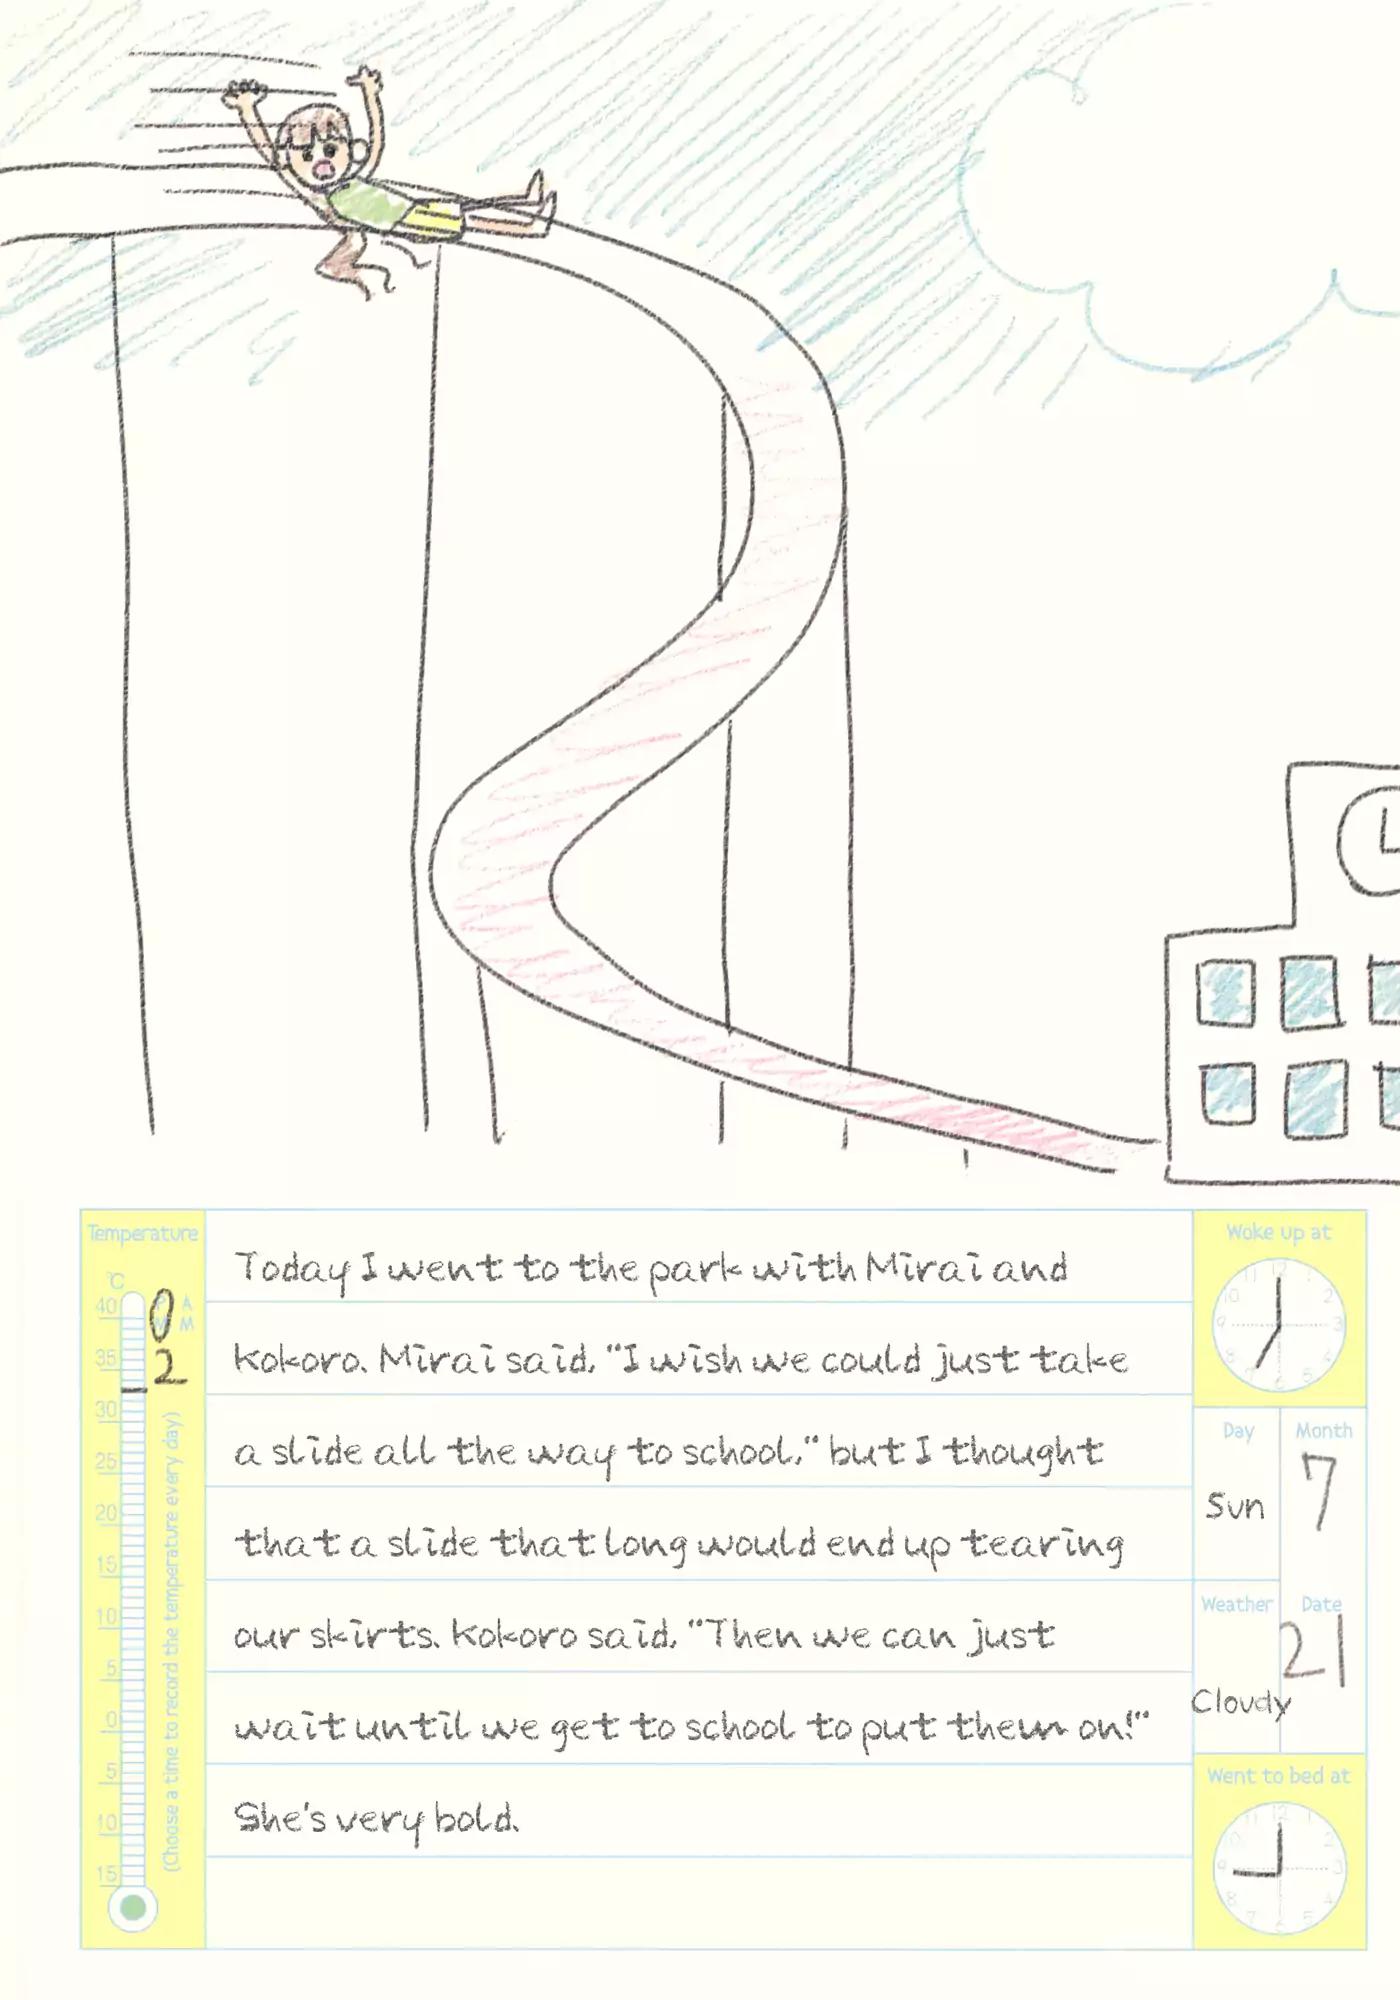 Temperature
°C
40
35
30
25
20
15
10
5
0
5
10
15
P A
M M
0
2
(Choose a time to record the temperature every day)
Today I went to the park with Mirai and
Kokoro. Mirai said, "I wish we could just take
a slide all the way to school," but I thought
that a slide that long would end up tearing
our skirts. Kokoro said, "Then we can just
wait until we get to school to put them on!"
She's very bold.
Woke up at
11 12
10 2
9 3
8 4
7 6 5
Day
Sun
Month
7
Weather
Cloudy
Date
21
Went to bed at
11 12 1
10 2
9 3
8 4
7 6 5